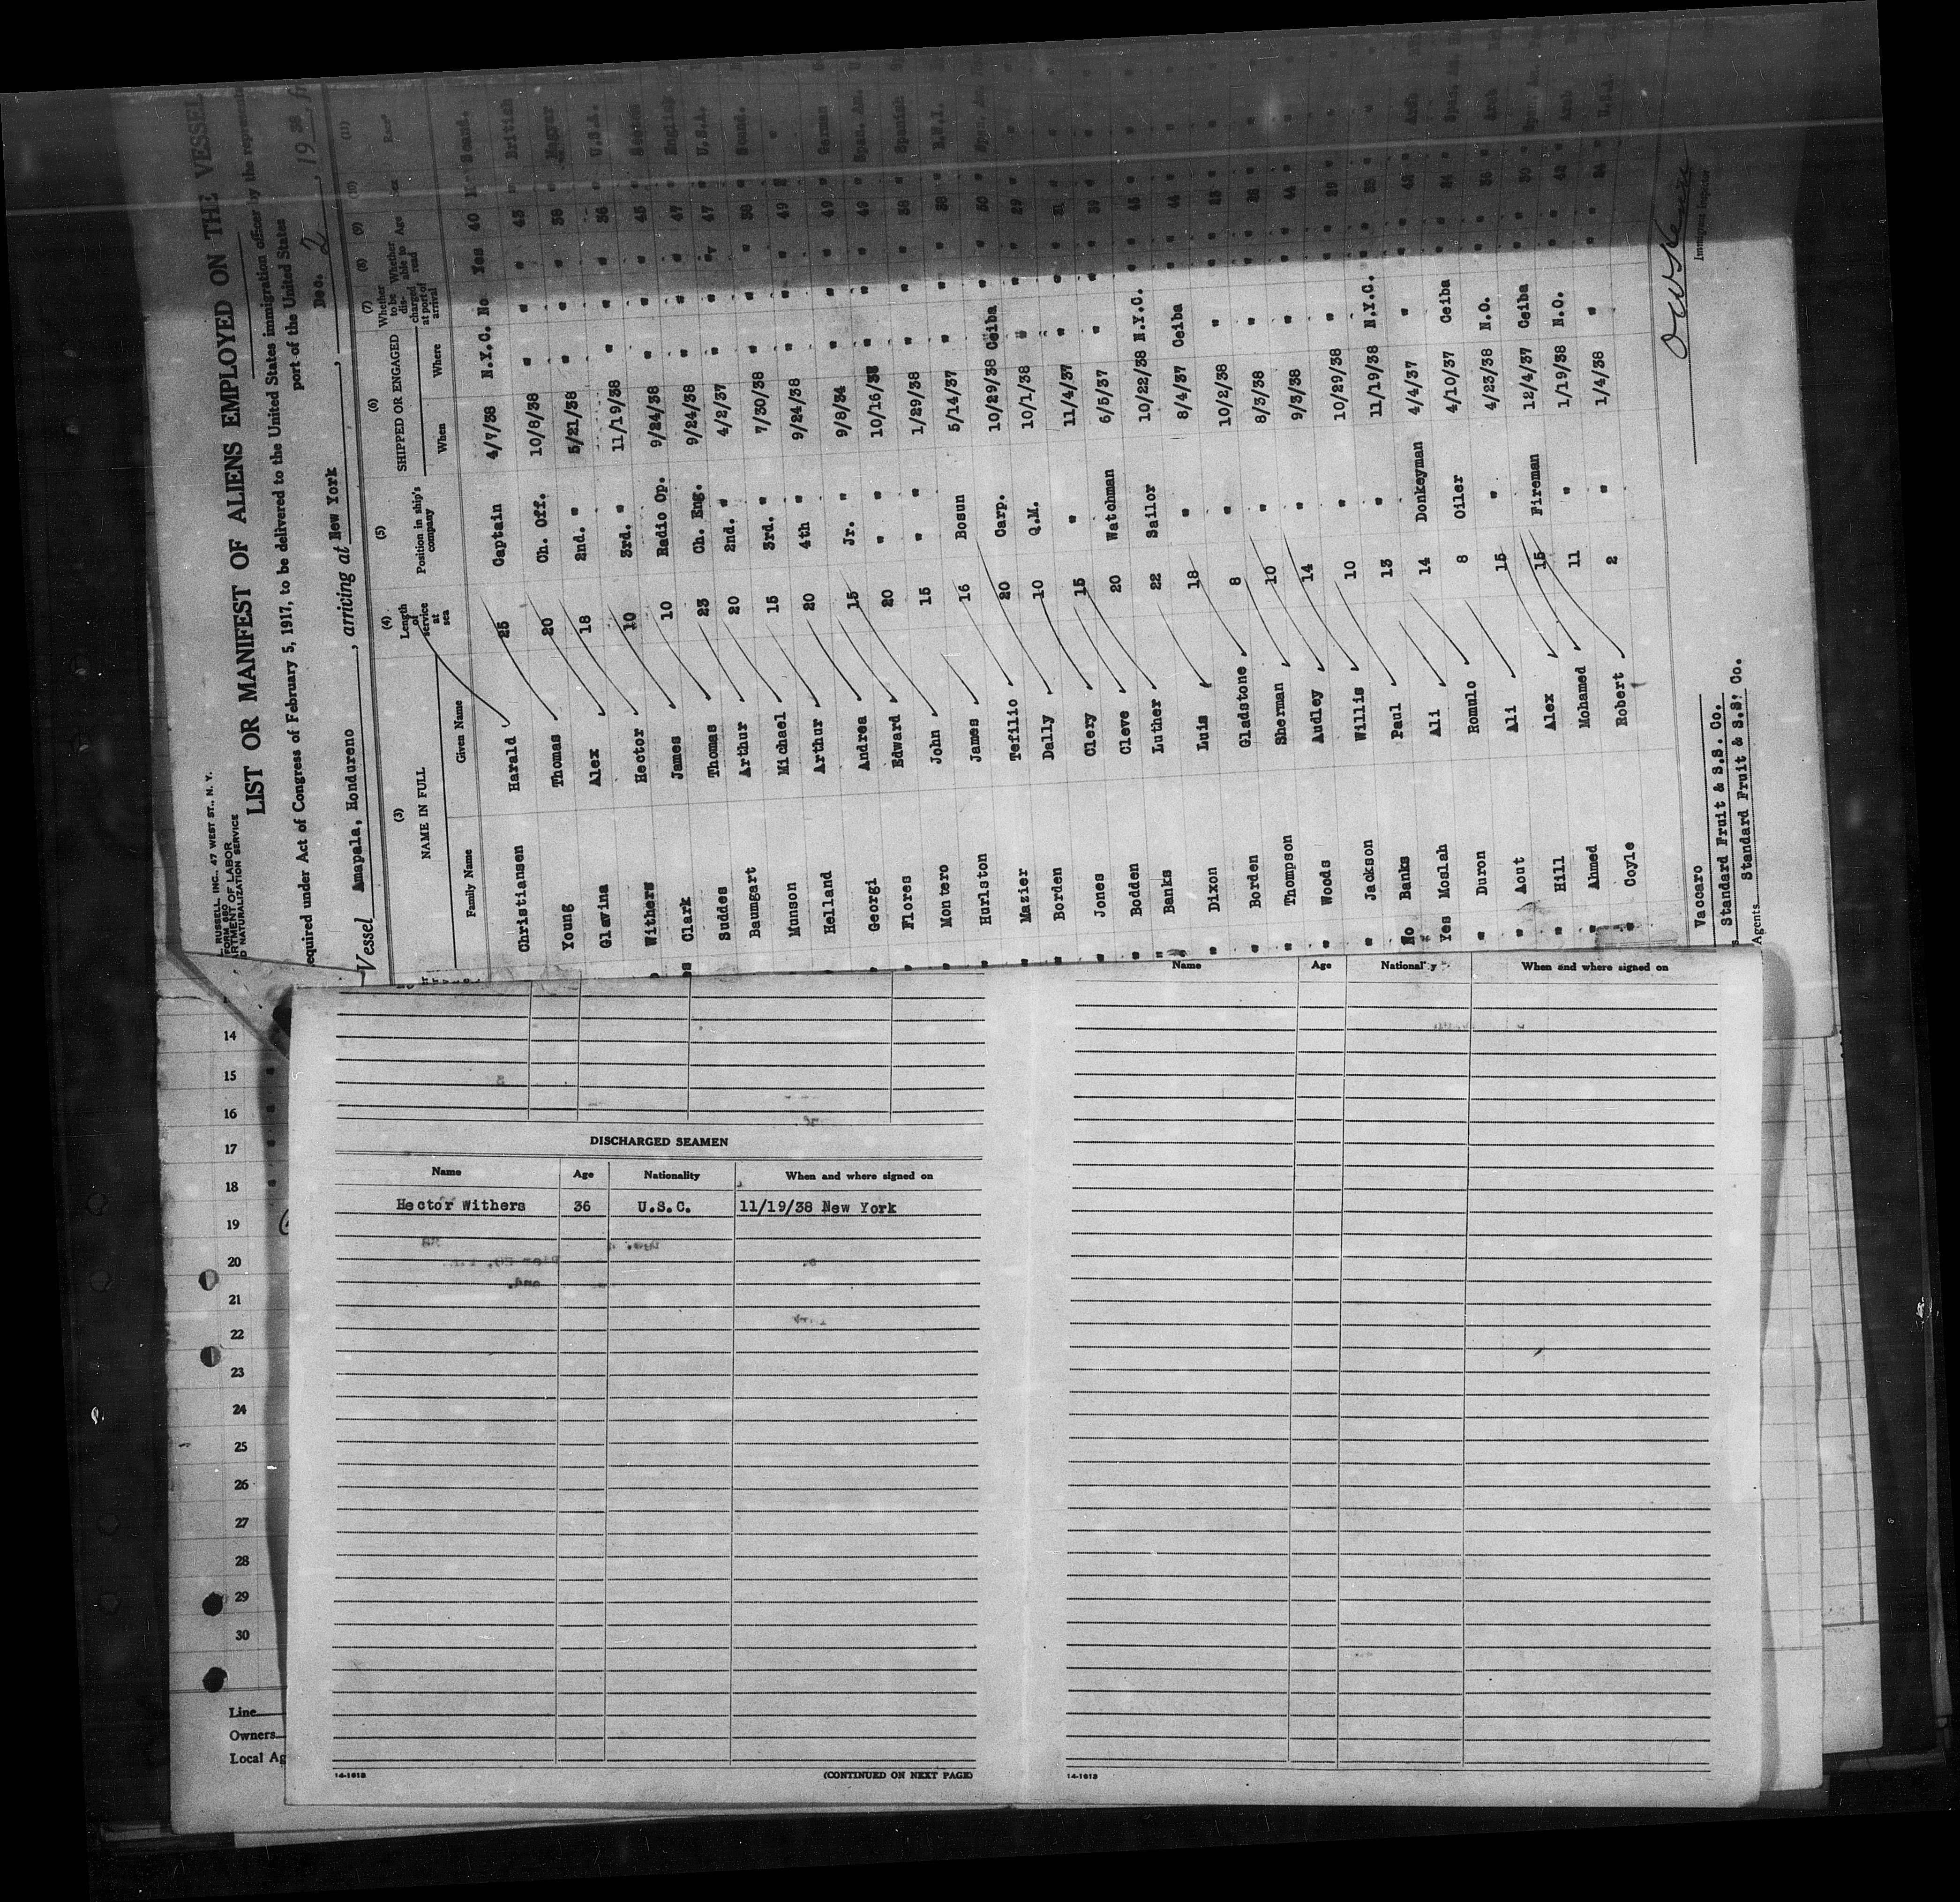 RUSSELL, INC., 47 WEST ST., N. Y.
FORM 680
ARTMENT OF LABOR
D NATURALIZATION SERVICE
LIST OR MANIFEST OF ALIENS EMPLOYED ON THE VESSEL
equired under Act of Congress of February 5, 1917, to be delivered to the United States immigration officer by the representa
port of the United States
Vessel Amapala, Hondureno, arriving at New York, Dec. 2, 1938, fr
(3) (4) (5) (6) (7) (8) (9) (10) (11)
NAME IN FULL Length of service at sea Position in ship's company SHIPPED OR ENGAGED Whether to be discharged at port of arrival Whether able to read Age Sex Race*
Family Name Given Name When Where
Christiansen Harald 25 Captain 4/7/38 N.Y.C. No Yes 40 M Scand.
Young Thomas 20 Ch. Off. 10/8/38 " " " 43 " British
Glavina Alex 18 2nd. " 5/21/38 " " " 38 " Magyar
Withers Hector 10 3rd. " 11/19/38 " " " 36 " U.S.A.
Clark James 10 Radio Op. 9/24/38 " " " 45 "
Suddes Thomas 23 Ch. Eng. 9/24/38 " " " 47 " English
Baumgart Arthur 20 2nd. " 4/2/37 " " " 47 " U.S.A.
Munson Michael 15 3rd. " 7/30/38 " " " 38 " Scand.
Helland Arthur 20 4th " 9/24/38 " " " 49 " "
Georgi Andrea 15 Jr. " 9/8/34 " " " 49 " German
Flores Edward 20 " 10/16/35 " " " 49 " Span. Am.
Montero John 15 " 1/29/38 " " " 38 " Spanish
Hurlston James 16 Bosun 5/14/37 " " " 38 " B.W.I.
Mazier Tefilio 20 Carp. 10/29/38 Ceiba " " 50 " Span. Am.
Borden Dally 10 Q.M. 10/1/38 " " " 29 " "
Jones Clery 15 " 11/4/37 " " " 31 " "
Bodden Cleve 20 Watchman 6/5/37 " " " 39 " "
Banks Luther 22 Sailor 10/22/38 N.Y.C. " " 45 " "
Dixon Luis 18 " 8/4/37 Ceiba " " 44 " "
Borden Gladstone 8 " 10/2/38 " " " 23 " "
Thompson Sherman 10 " 8/3/38 " " " 28 " "
Woods Audley 14 " 9/3/38 " " " 44 " "
Jackson Willis 10 " 10/29/38 " " " 29 " "
No Banks Paul 13 " 11/19/38 N.Y.C. " " 33 " "
Yes Moslah Ali 14 Donkeyman 4/4/37 " " " 42 " Arab
" Duron Romulo 8 Oiler 4/10/37 Ceiba " " 24 " Span. Am.
" Aout Ali 15 " 4/23/38 N.O. " " 36 " Arab
" Hill Alex 15 Fireman 12/4/37 Ceiba " " 30 " Span. Am.
" Ahmed Mohamed 11 " 1/19/38 N.O. " " 42 " Arab
" Coyle Robert 2 " 1/4/38 " " " 24 " U.S.A.
Vaccaro
Standard Fruit & S.S. Co.
Agents Standard Fruit & S.S. Co.
Immigrant Inspector
14
15
16
17
18
19
20
21
22
23
24
25
26
27
28
29
30
Line
Owners
Local Ag
DISCHARGED SEAMEN
Name Age Nationality When and where signed on
Hector Withers 36 U.S.C. 11/19/38 New York
14-1613 (CONTINUED ON NEXT PAGE)
Name Age Nationality When and where signed on
14-1613